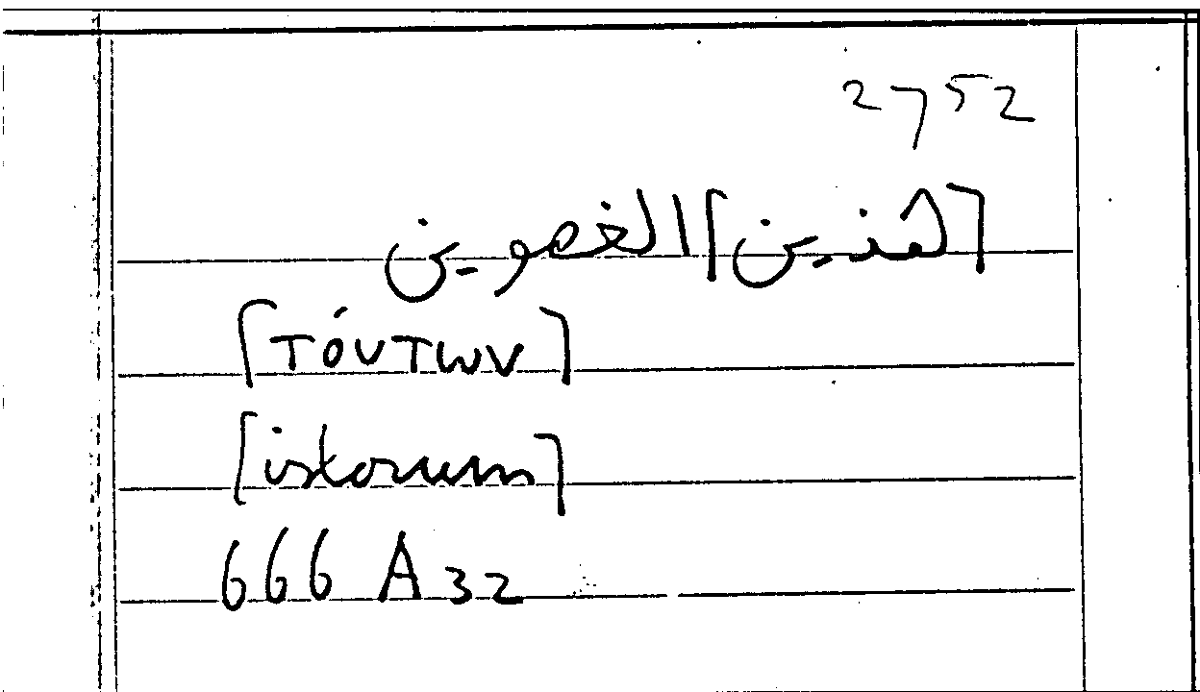 2752
[هذين] العضوين
[τόυτων]
[istorum]
666 A 32